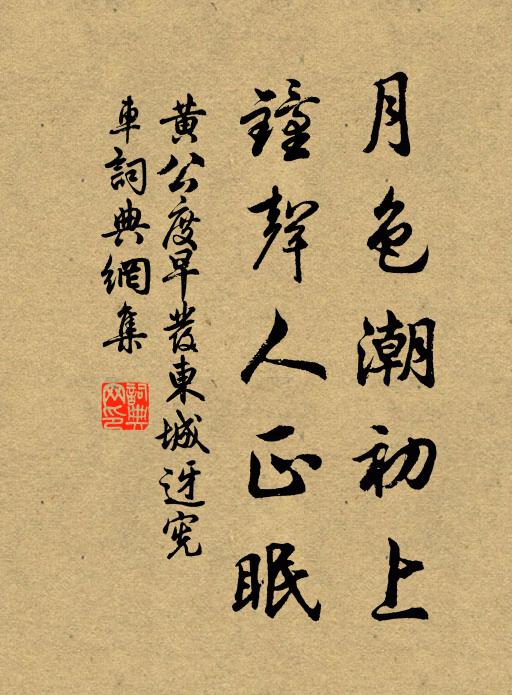 月色潮初上
鐘聲人正眠
黃公度早發東城迓憲
車詞典網集
詞典
網印